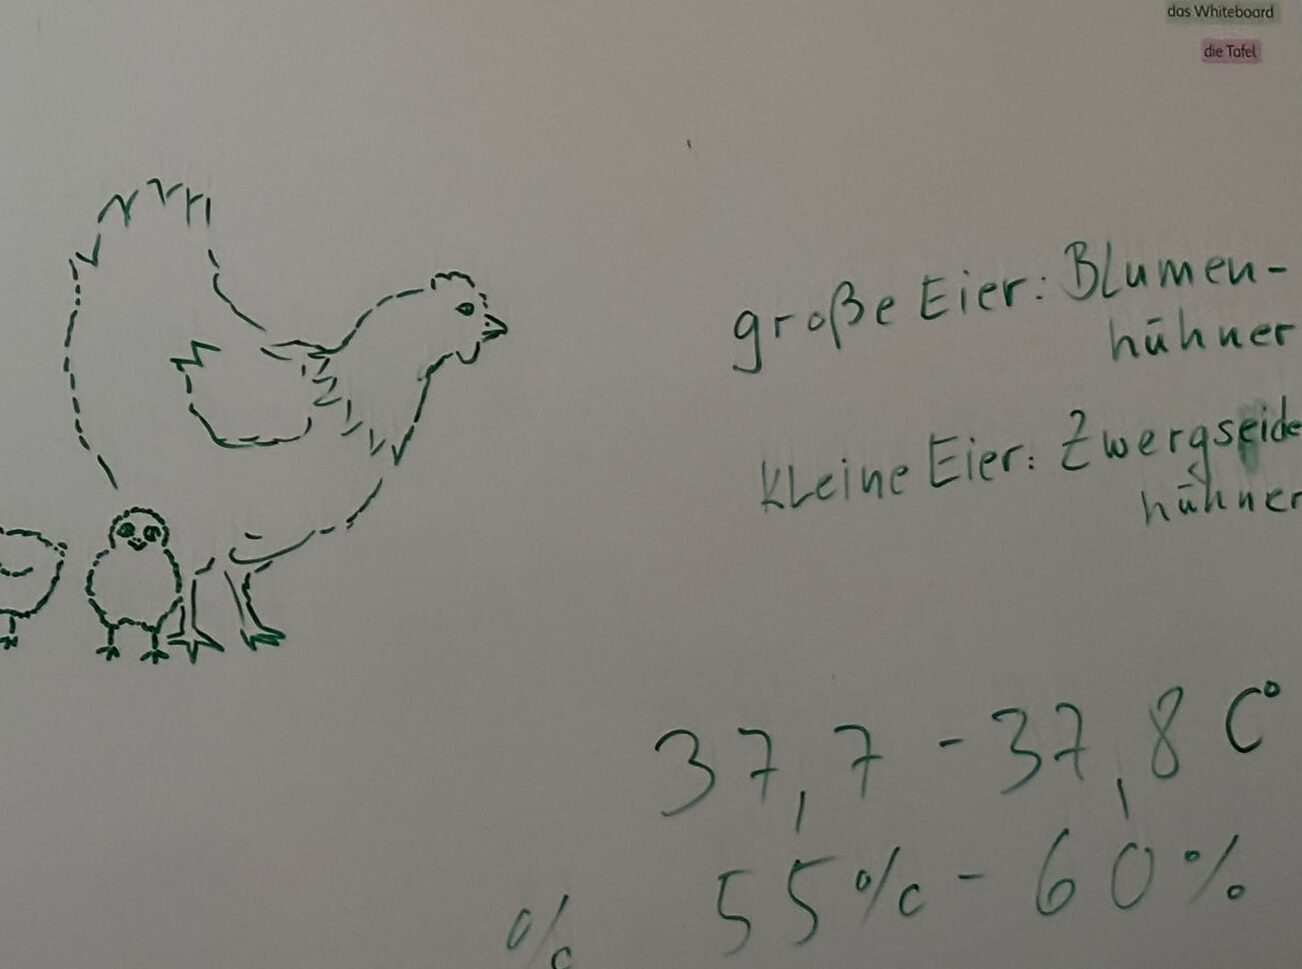 das Whiteboard
die Tafel
große Eier: Blumen-
hühner
kleine Eier: Zwergseide
hühner
37,7 - 37,8 C°
55% - 60%
%